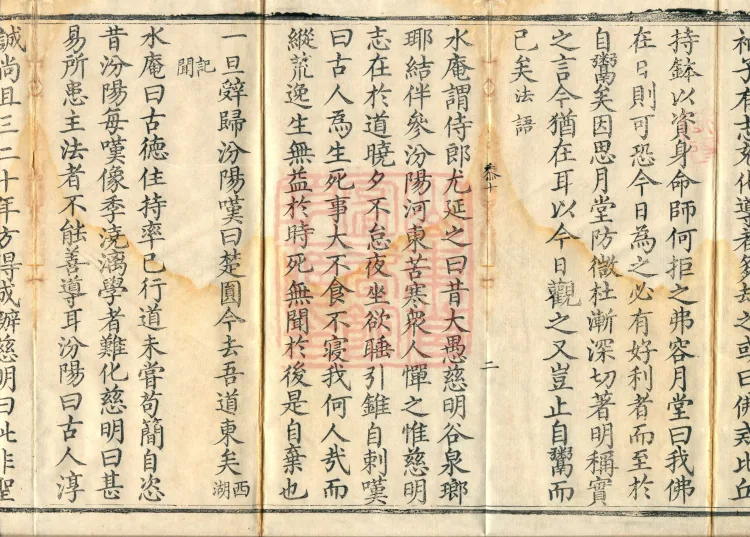 衲子有志充化導者多却之或曰佛戒比丘
持鉢以資身命師何拒之弗容月堂曰我佛
在日則可恐今日為之必有好利者而至於
自鬻矣因思月堂防微杜漸深切著明稱實
之言今猶在耳以今日觀之又豈止自鬻而
已矣法語
二
水庵謂侍郎尤延之曰昔大愚慈明谷泉瑯
瑘結伴參汾陽河東苦寒眾人憚之惟慈明
志在於道曉夕不怠夜坐欲睡引錐自刺嘆
曰古人為生死事大不食不寢我何人哉而
縱荒逸生無益於時死無聞於後是自棄也
一旦辭歸汾陽嘆曰楚圓今去吾道東矣西湖
記聞
水庵曰古德住持率己行道未嘗苟簡自恣
昔汾陽每嘆像季澆漓學者難化慈明曰甚
易所患主法者不能善導耳汾陽曰古人淳
誠尚且三二十年方得成辦慈明曰此非聖